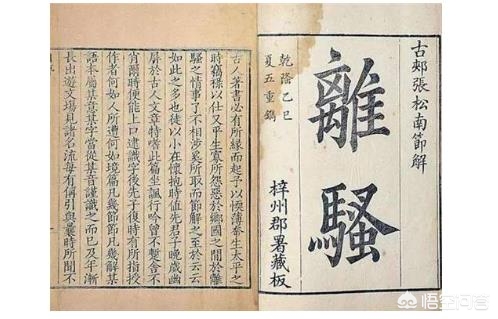 古郟張松南節解
離騷
乾隆乙巳
夏五重鐫
梓州郡署藏板
古人著書必有所緣而起予以薄生太平之
時竊祿以仕又平生寡所怨惡於鄉國之間於離
騷之情事了不相涉奚所取而節解之至於云云
如此之多也徒以小在懷抱時值先君子晚歲幽
屏於古人文章特嗜此篇坐諷行吟曾不蹔舍不
肖爾時便能上口逮識字後先子復時有所指授
作者何如人所遭何如境篇凡幾節節凡幾解某
語本屬某意某字當從某音謹識之而已及年漸
長出遊文場見諸名流每有稱引與曩時所聞不
悟空问答